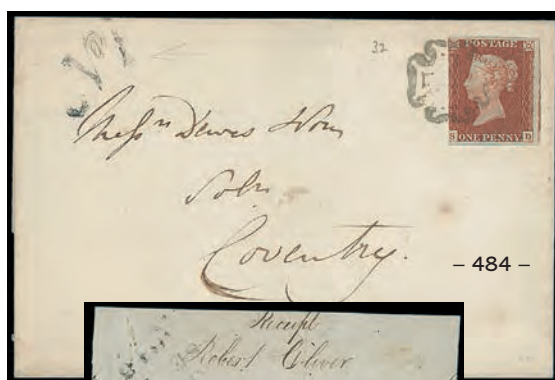 32
POSTAGE
S ONE PENNY D
Dewes
Solrs
Coventry.
– 484 –
Receipt
Robert Oliver